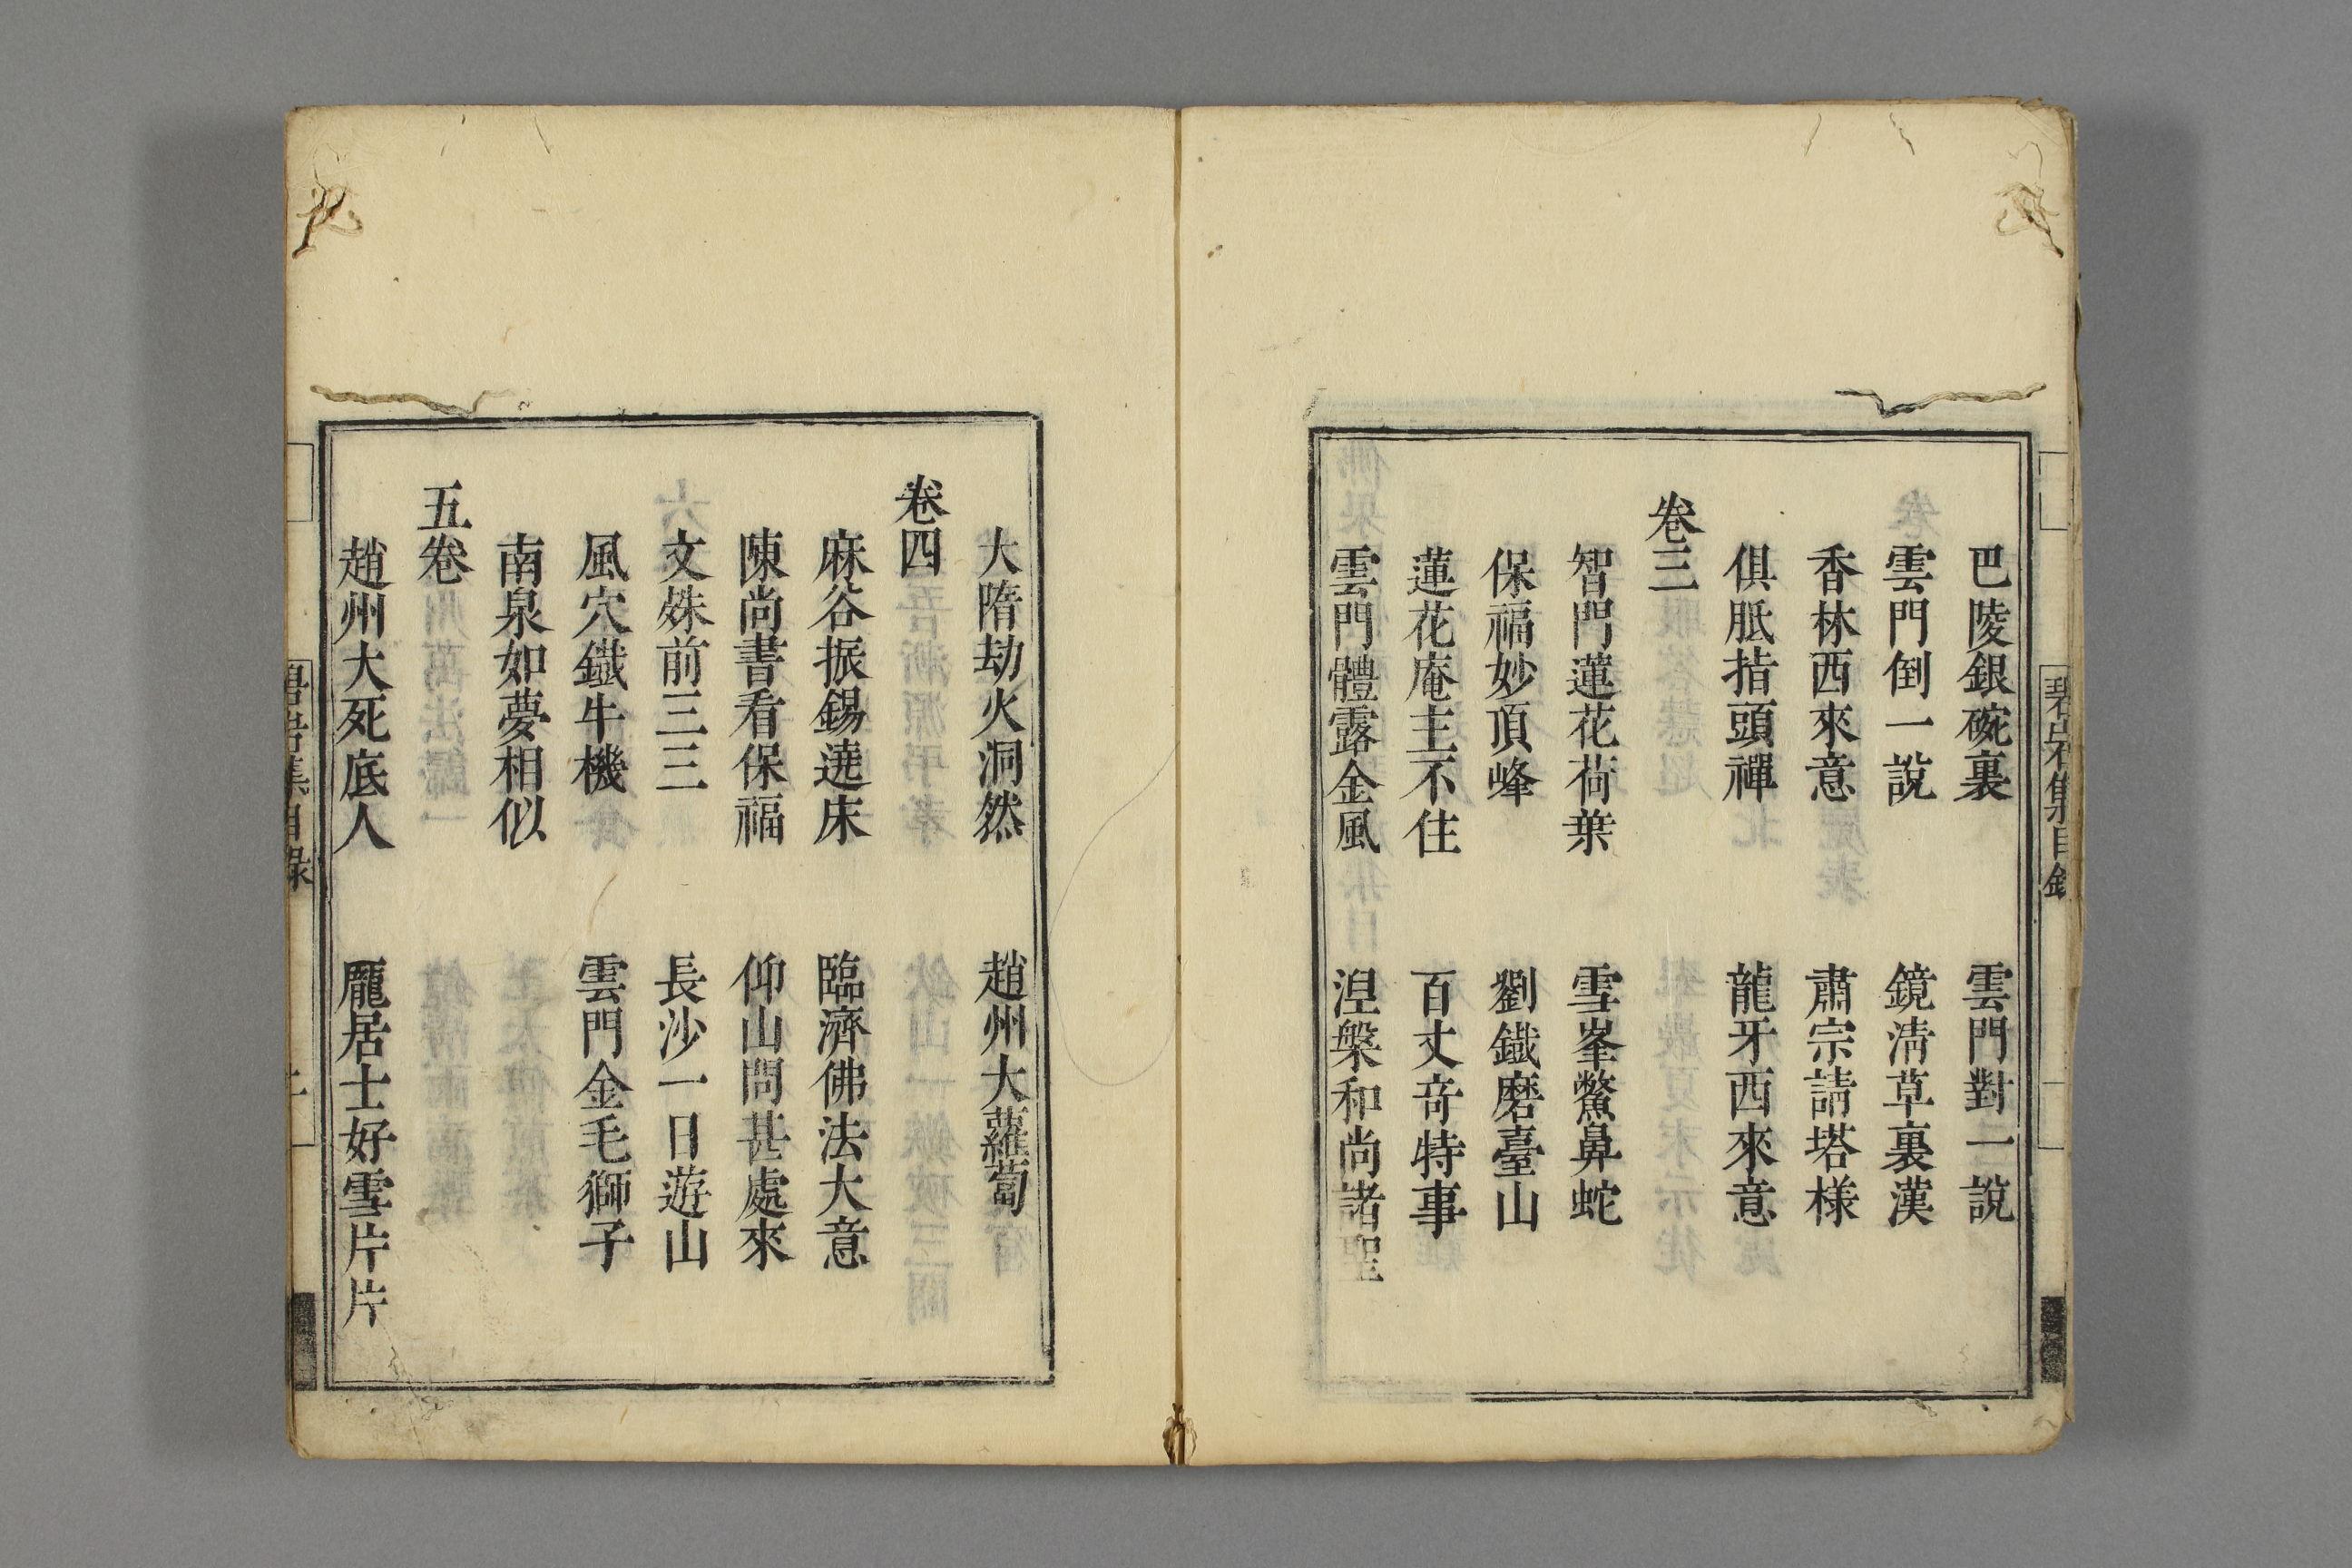 碧岩集目錄
巴陵銀碗裏　雲門對一說
雲門倒一說　鏡淸草裏漢
香林西來意　肅宗請塔様
俱胝指頭禪　龍牙西來意
卷三
智門蓮花荷葉　雪峯鱉鼻蛇
保福妙頂峰　劉鐵磨臺山
蓮花庵主不住　百丈竒特事
雲門體露金風　涅槃和尚諸聖
大隋劫火洞然　趙州大蘿蔔
卷四
麻谷振錫遶床　臨濟佛法大意
陳尚書看保福　仰山問甚處來
文殊前三三　長沙一日遊山
風穴鐵牛機　雲門金毛獅子
南泉如夢相似
五卷
趙州大死底人　龐居士好雪片片
碧岩集目錄